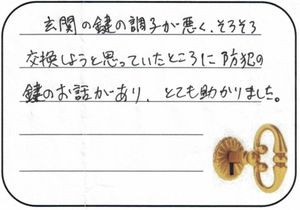 玄関の鍵の調子が悪く、そろそろ
交換しようと思っていたところに防犯の
鍵のお話があり、とても助かりました。